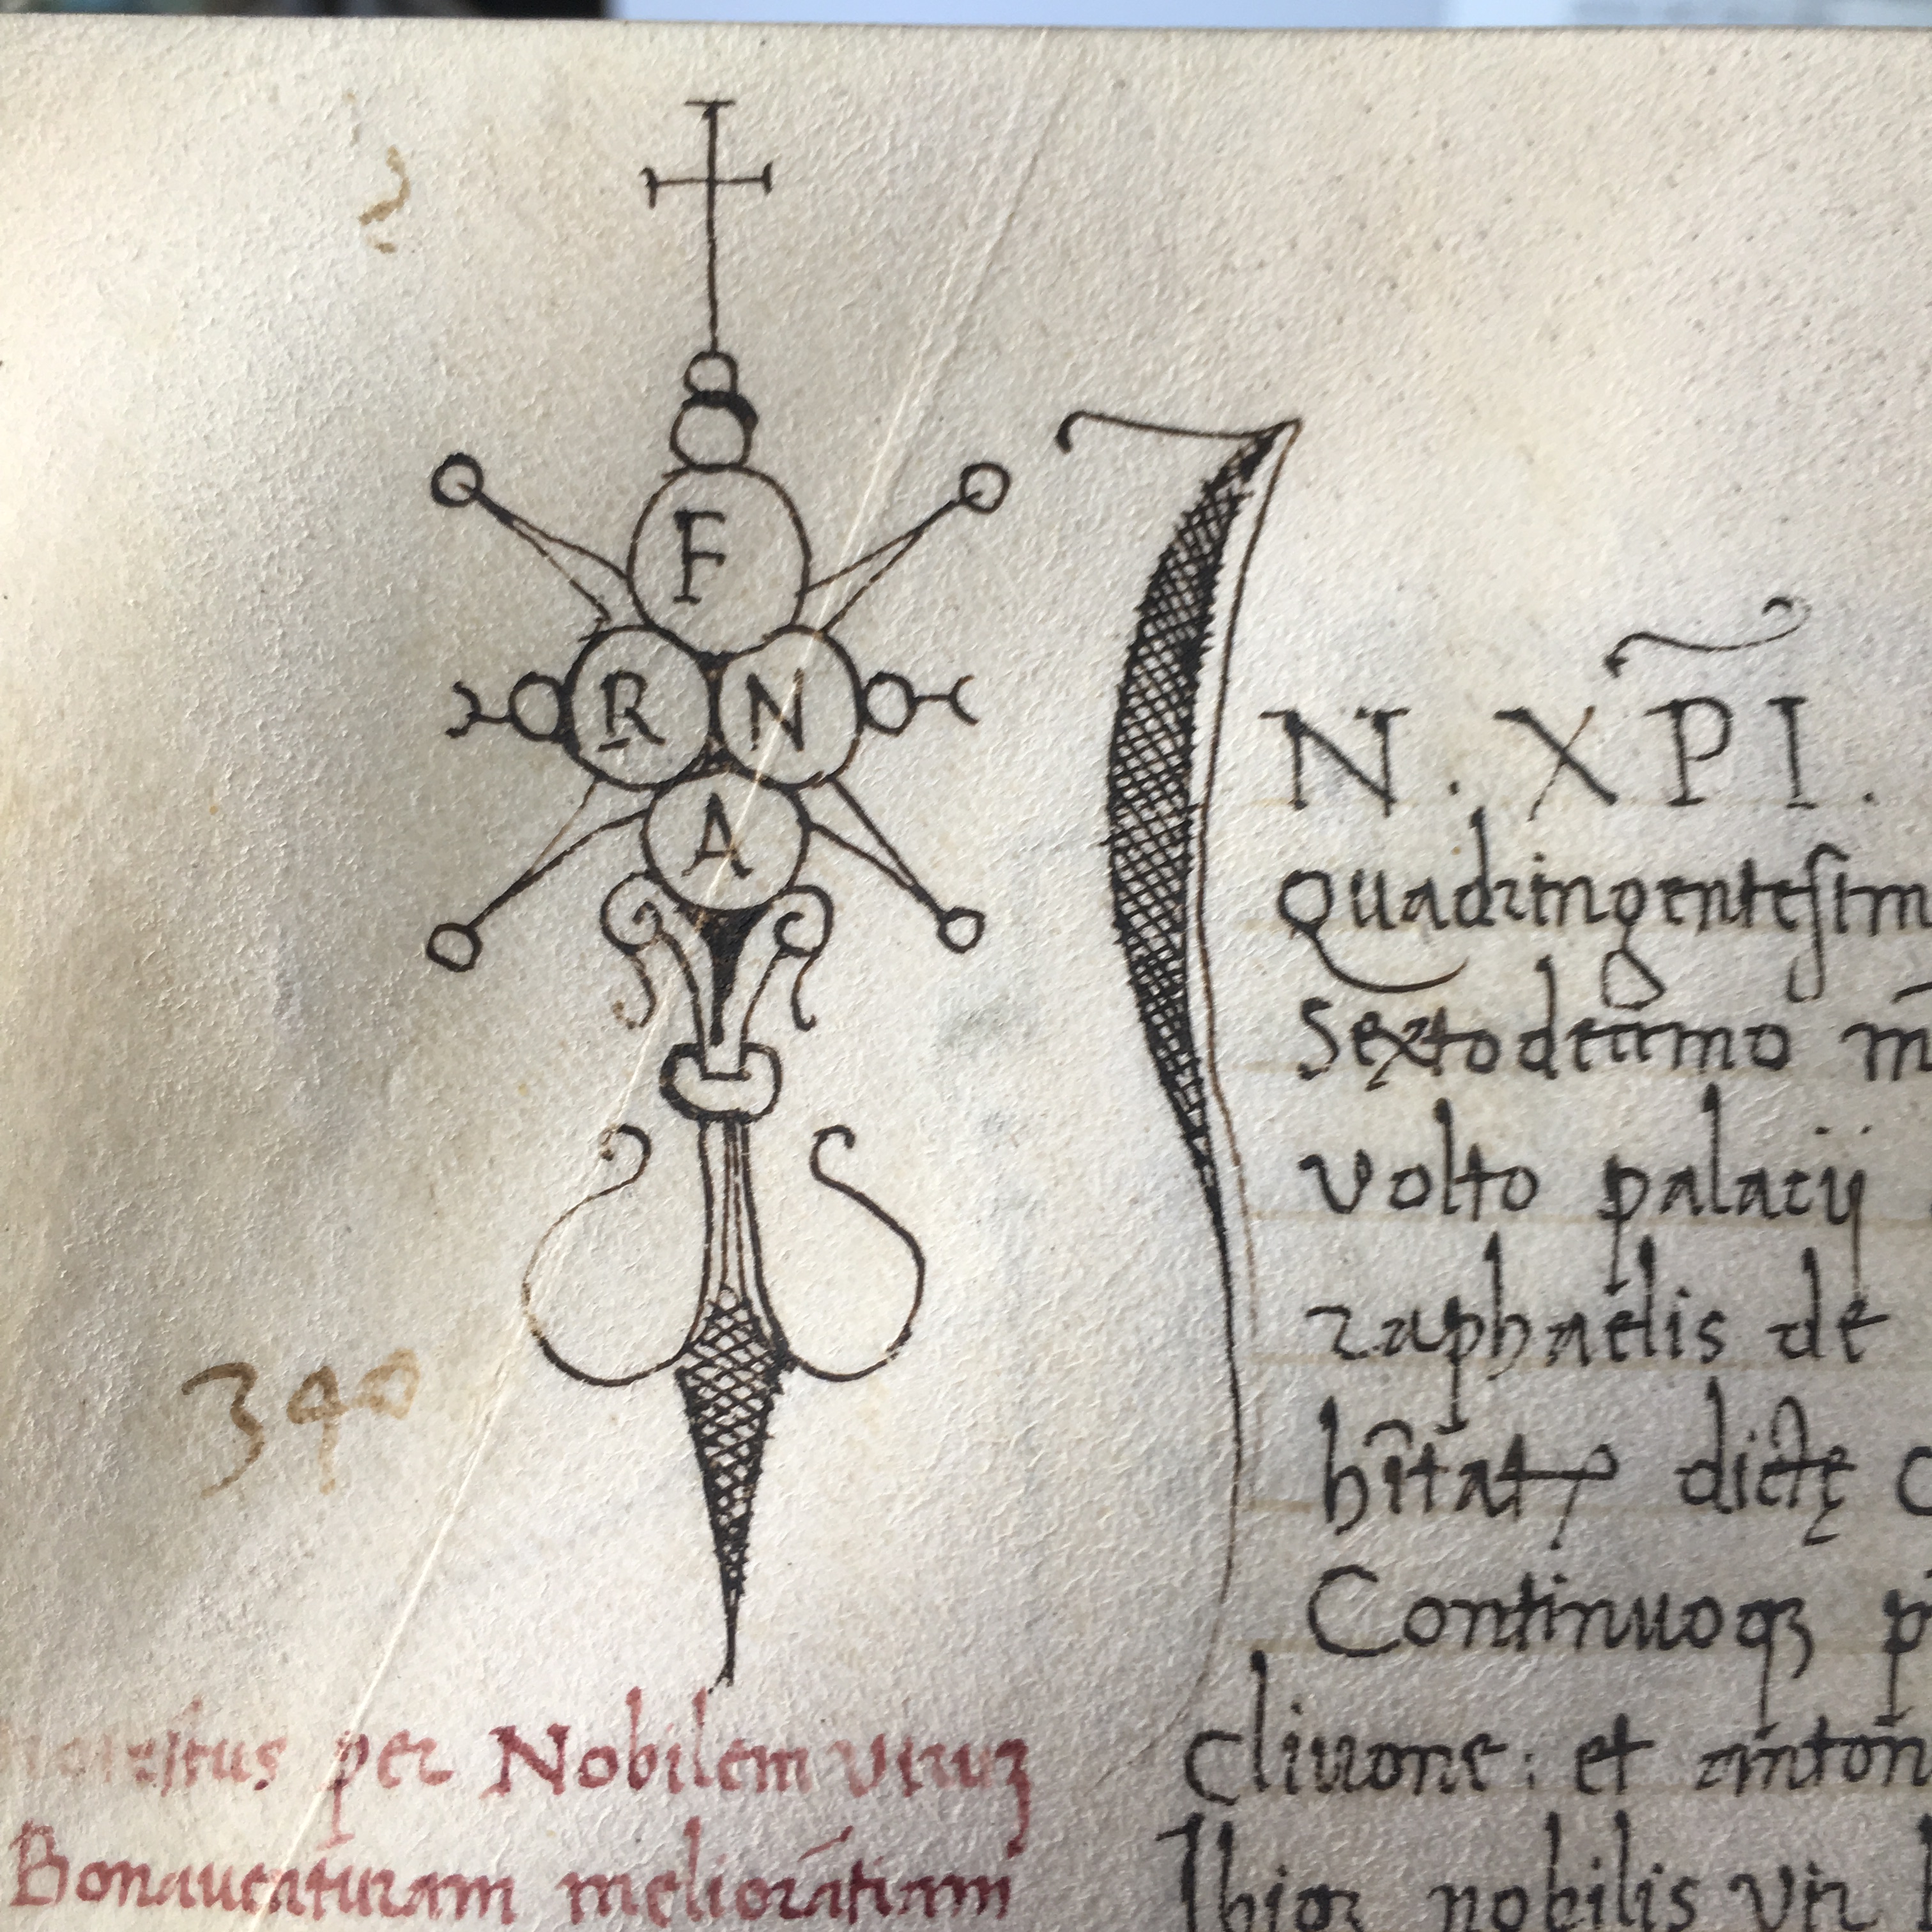 2
F
R N
A
390
IN. XP̃I.
quadringentesim
Sextodecimo m̄
volto palacij
raphaelis de
hītat dictę c
Continuoqꝫ p
clivone: et anton̄
Ibiqꝫ nobilis vir
per Nobilem viruꝫ
Bonaventuram melioratum